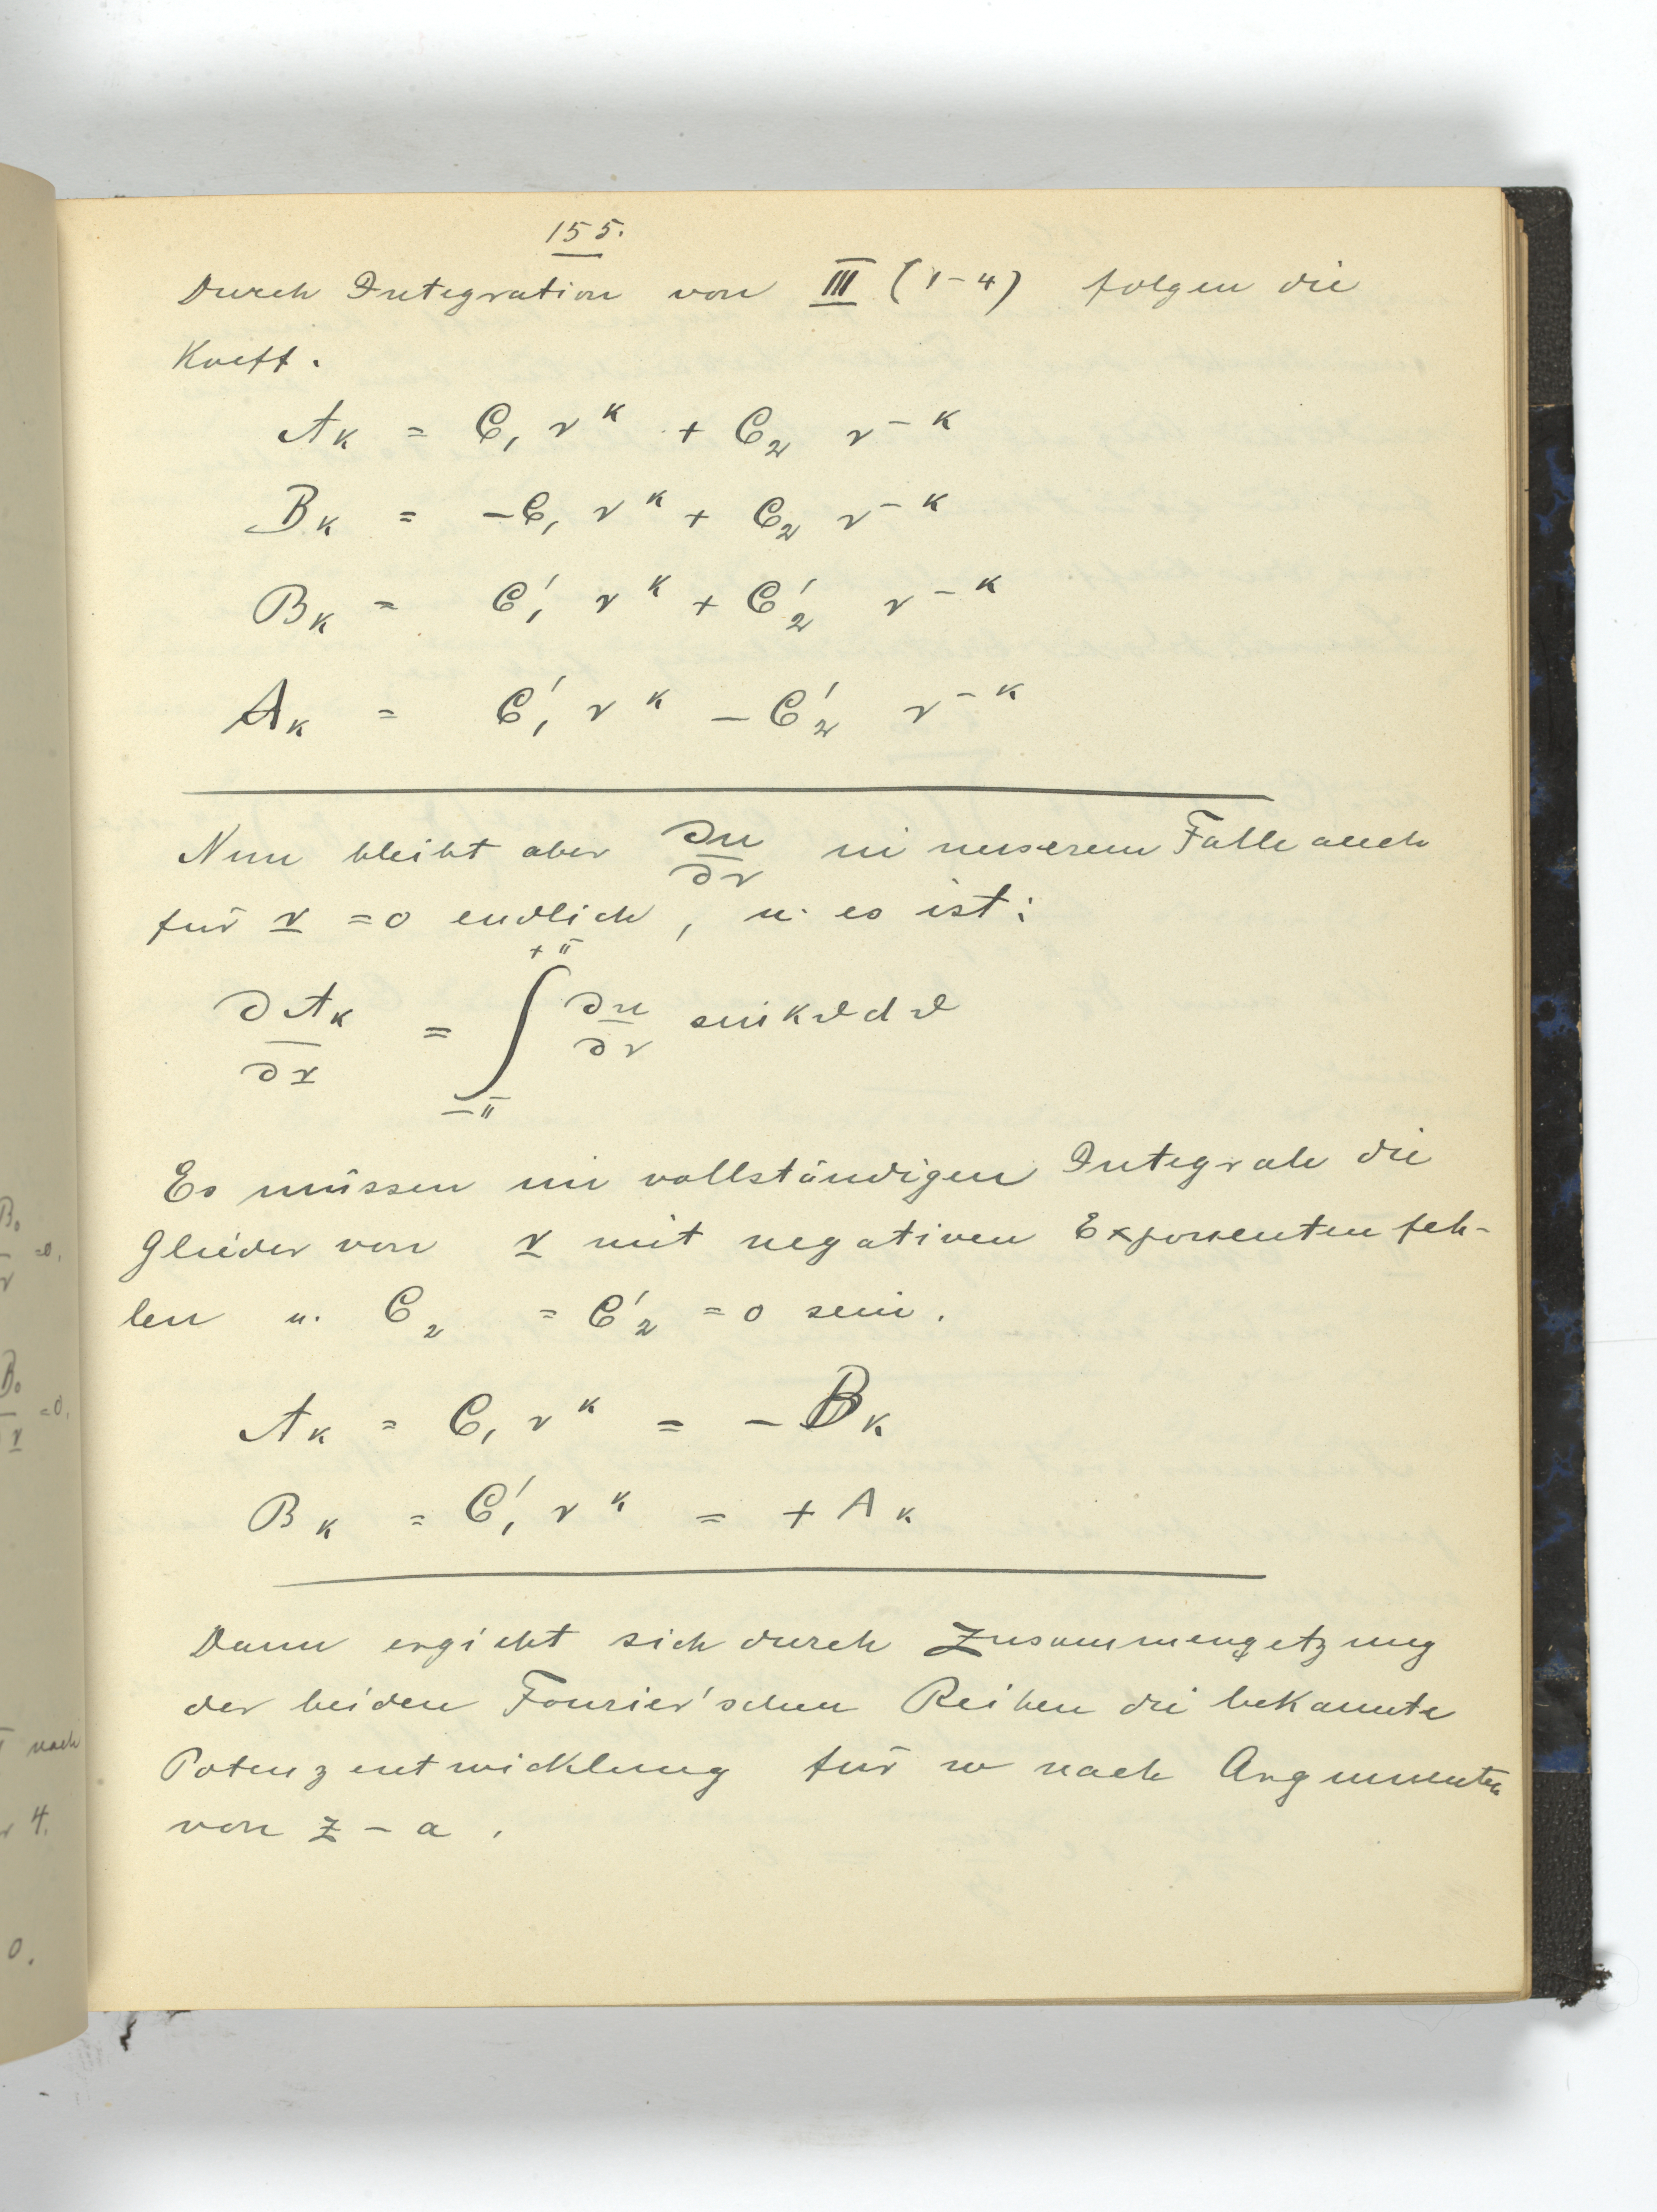 155.
Durch Integration von III (1-4) folgen die
Koeff.
A_k = C_1 r^k + C_2 r^{-k}
B_k = -C_1 r^k + C_2 r^{-k}
B_k = C'_1 r^k + C'_2 r^{-k}
A_k = C'_1 r^k - C'_2 r^{-k}
Nun bleibt aber ∂u/∂r in unserem Falle auch
für r = 0 endlich, u. es ist:
∂A_k/∂r = ∫_{-π}^{+π} ∂u/∂r sin kϑ dϑ
Es müssen im vollständigen Integrale die
Glieder von r mit negativen Exponenten feh-
len u. C_2 = C'_2 = 0 sein.
A_k = C_1 r^k = - B_k
B_k = C'_1 r^k = + A_k
Dann ergiebt sich durch Zusammensetzung
der beiden Fourier'schen Reihen die bekannte
Potenzentwicklung für w nach Argumenten
von z - a.
B_0
= 0.
B_0
= 0.
r
nach
4.
0.